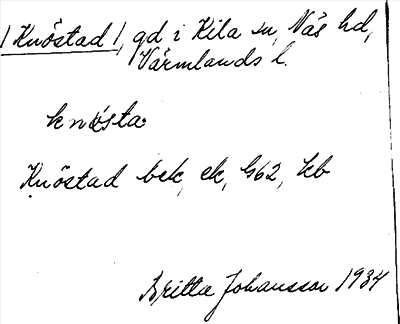 /Knöstad/, gd i Kila sn, Näs hd,
Värmlands l.
knösta
Knöstad bek, ek, G62, kb
Britta Johansson 1934